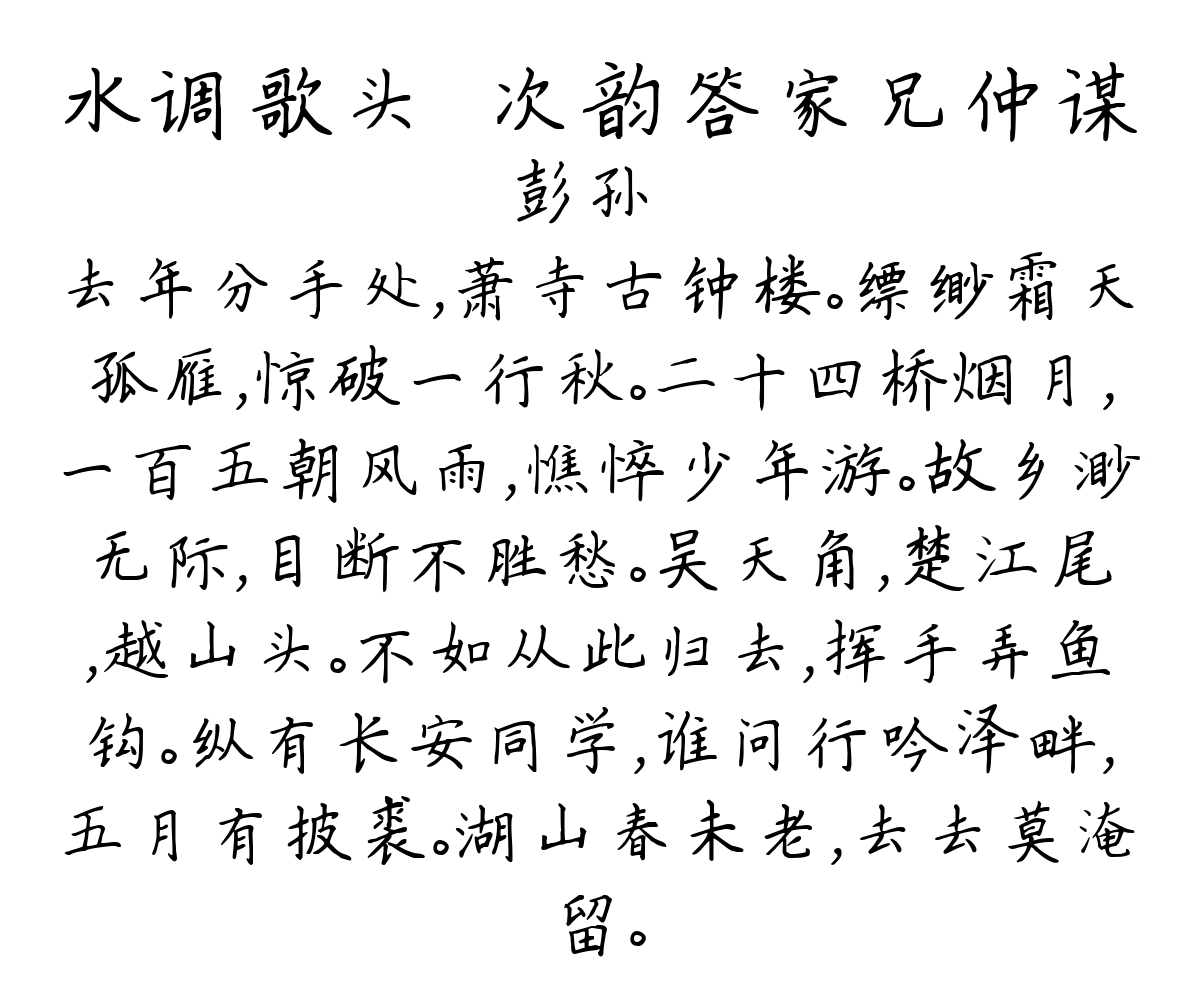 水调歌头 次韵答家兄仲谋
彭孙
去年分手处,萧寺古钟楼。缥缈霜天
孤雁,惊破一行秋。二十四桥烟月,
一百五朝风雨,憔悴少年游。故乡渺
无际,目断不胜愁。吴天角,楚江尾
,越山头。不如从此归去,挥手弄鱼
钩。纵有长安同学,谁问行吟泽畔,
五月有披裘。湖山春未老,去去莫淹
留。